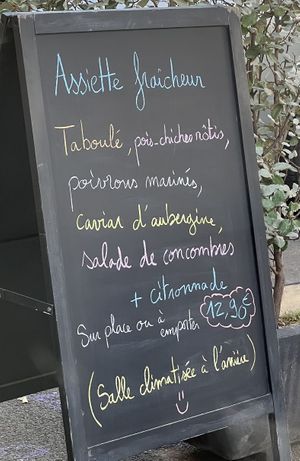 Assiette fraîcheur
Taboulé, pois-chiches rôtis,
poivrons marinés,
caviar d'aubergine,
salade de concombres
+ citronnade
Sur place ou à emporter 12,90€
(Salle climatisée à l'arrière)